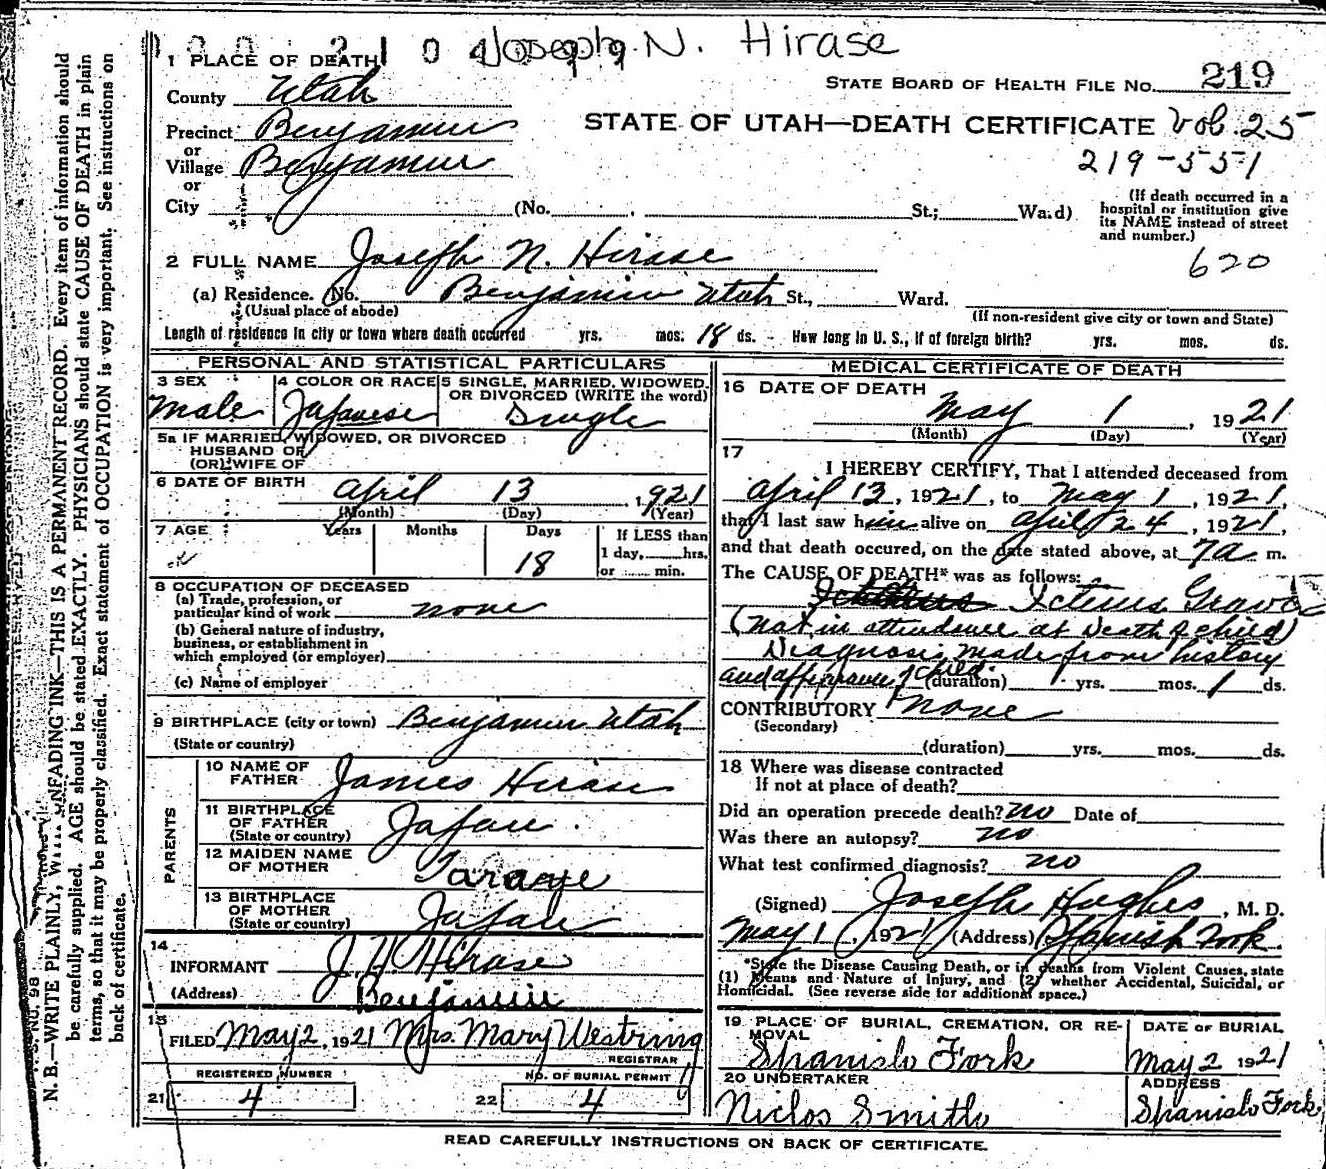 Joseph N. Hirase
1 PLACE OF DEATH
STATE BOARD OF HEALTH FILE NO. 219
County Utah
STATE OF UTAH—DEATH CERTIFICATE Vol. 25
Precinct Benjamin
219-551
or
Village Benjamin
or
City (No. St.; Ward)
(If death occurred in a
hospital or institution give
its NAME instead of street
and number.)
620
2 FULL NAME Joseph N. Hirase
(a) Residence. No. Benjamin Utah St., Ward.
(Usual place of abode)
(If non-resident give city or town and State)
Length of residence in city or town where death occurred yrs. mos. 18 ds. - How long in U. S., if of foreign birth? yrs. mos. ds.
PERSONAL AND STATISTICAL PARTICULARS
3 SEX
Male
4 COLOR OR RACE
Japanese
5 SINGLE, MARRIED, WIDOWED,
OR DIVORCED (WRITE the word)
Single
5a IF MARRIED, WIDOWED, OR DIVORCED
HUSBAND OF
(OR) WIFE OF
6 DATE OF BIRTH April 13, 1921
(Month) (Day) (Year)
7 AGE Years Months Days
18
If LESS than
1 day, hrs.
or min.
8 OCCUPATION OF DECEASED
(a) Trade, profession, or
particular kind of work none
(b) General nature of industry,
business, or establishment in
which employed (or employer)
(c) Name of employer
9 BIRTHPLACE (city or town) Benjamin Utah
(State or country)
PARENTS
10 NAME OF
FATHER James Hirase
11 BIRTHPLACE
OF FATHER Japan.
(State or country)
12 MAIDEN NAME
OF MOTHER Taraye
13 BIRTHPLACE
OF MOTHER Japan
(State or country)
14
INFORMANT J. H. Hirase
(Address) Benjamin
15
FILED May 2, 1921 Mrs. Mary Westring
REGISTRAR
REGISTERED NUMBER
21 4
NO. OF BURIAL PERMIT
22 4
MEDICAL CERTIFICATE OF DEATH
16 DATE OF DEATH
May 1, 1921
(Month) (Day) (Year)
17
I HEREBY CERTIFY, That I attended deceased from
April 13, 1921, to May 1, 1921,
that I last saw him alive on April 24, 1921,
and that death occured, on the date stated above, at 7a m.
The CAUSE OF DEATH* was as follows:
Icterus Gravis
(Not in attendence at death of child)
Diagnosis made from history
and appearance of child. (duration) yrs. mos. 1 ds.
CONTRIBUTORY None
(Secondary)
(duration) yrs. mos. ds.
18 Where was disease contracted
If not at place of death?
Did an operation precede death? no Date of
Was there an autopsy? no
What test confirmed diagnosis? no
(Signed) Joseph Hughes, M. D.
May 1, 1921 (Address) Spanish Fork.
*State the Disease Causing Death, or in deaths from Violent Causes, state
(1) Means and Nature of Injury, and (2) whether Accidental, Suicidal, or
Homicidal. (See reverse side for additional space.)
19 PLACE OF BURIAL, CREMATION, OR RE-
MOVAL
Spanish Fork
DATE OF BURIAL
May 2 1921
20 UNDERTAKER
Niclos Smith
ADDRESS
Spanish Fork
READ CAREFULLY INSTRUCTIONS ON BACK OF CERTIFICATE.
N. B.—WRITE PLAINLY, WITH UNFADING INK—THIS IS A PERMANENT RECORD. Every item of information should
be carefully supplied. AGE should be stated EXACTLY. PHYSICIANS should state CAUSE OF DEATH in plain
terms, so that it may be properly classified. Exact statement of OCCUPATION is very important. See instructions on
back of certificate.